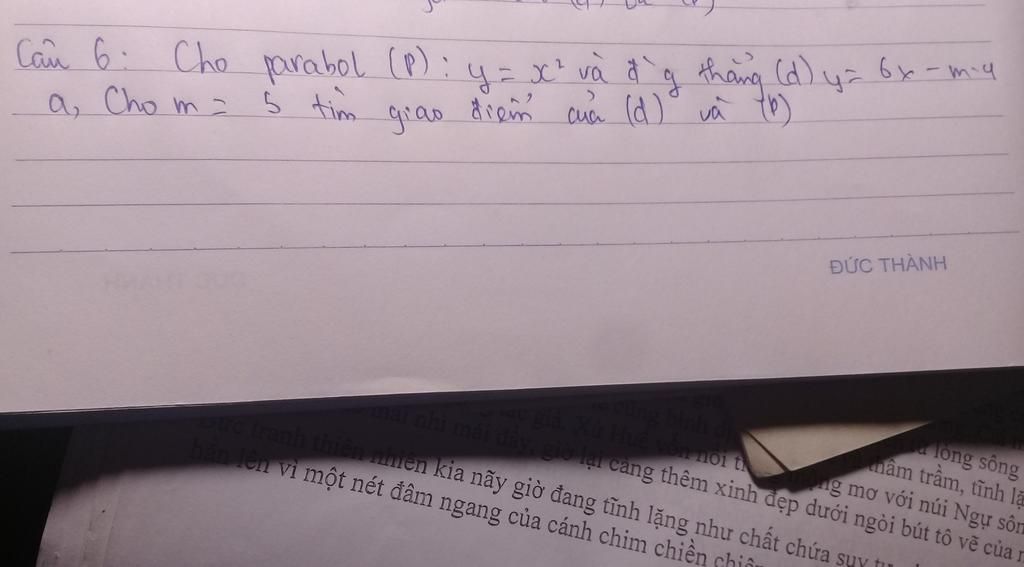 Câu 6: Cho parabol (P): y = x² và đ̀g thẳng (d) y = 6x - m - 4
a, Cho m = 5 tìm giao điểm của (d) và (P)
ĐỨC THÀNH
mái nhì mái đẩy, giờ lại càng thêm xinh đẹp dưới ngòi bút tô vẽ của
giả. Xứ Huế vốn nổi mộng mơ với núi Ngự
thâm trầm, tĩnh
lòng sông
Bức tranh thiên nhiên kia nãy giờ đang tĩnh lặng như chất chứa suy
hẳn lên vì một nét đâm ngang của cánh chim chiền